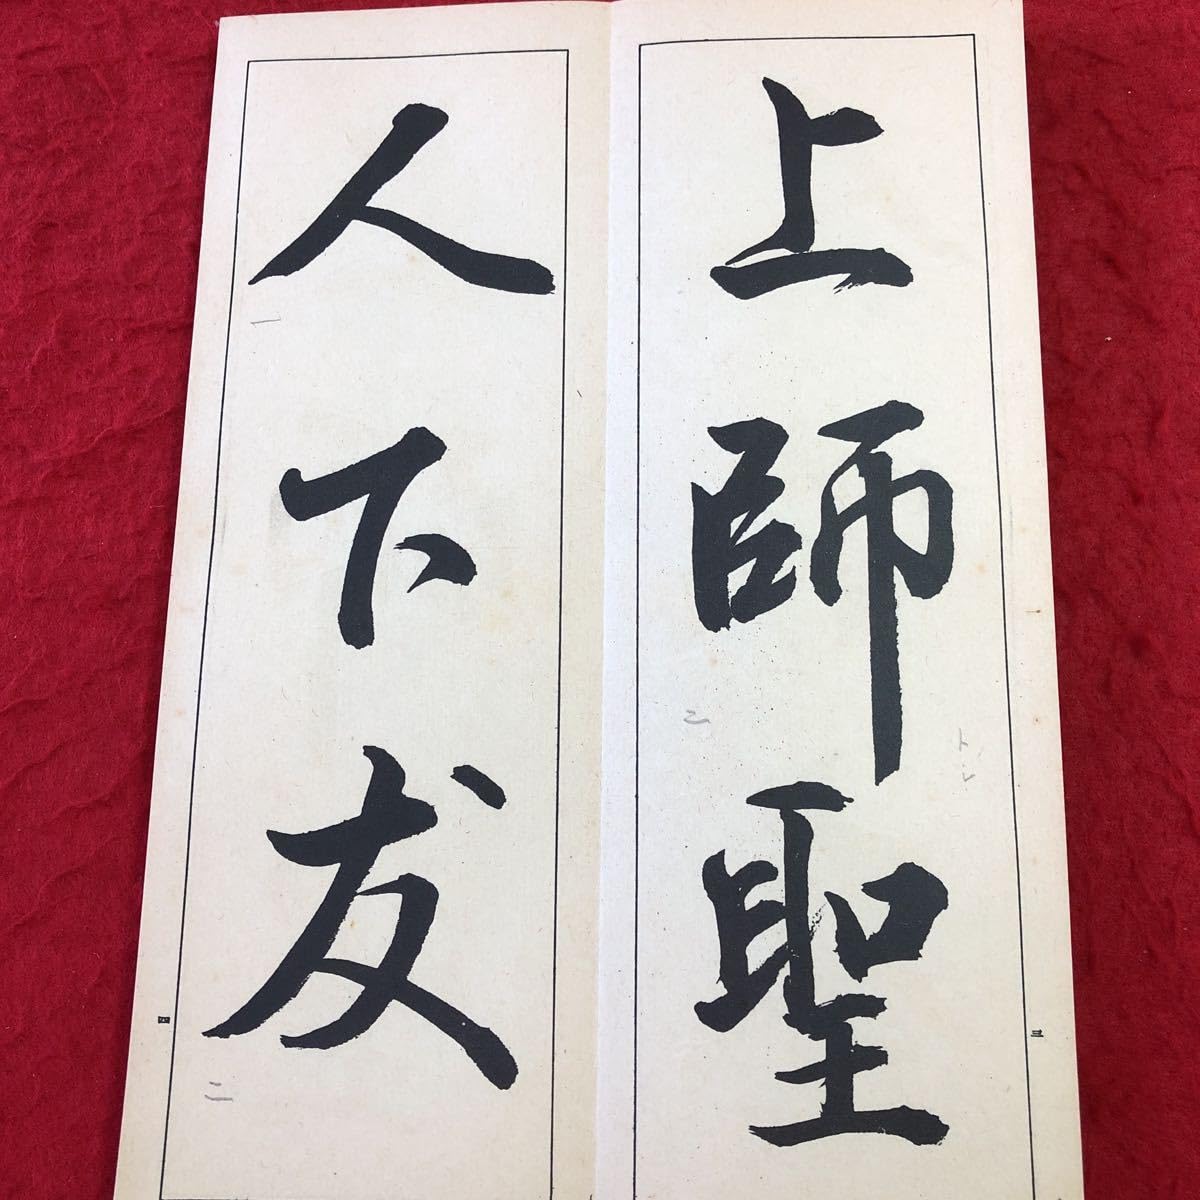 上師聖
人下友
三
四
一
二